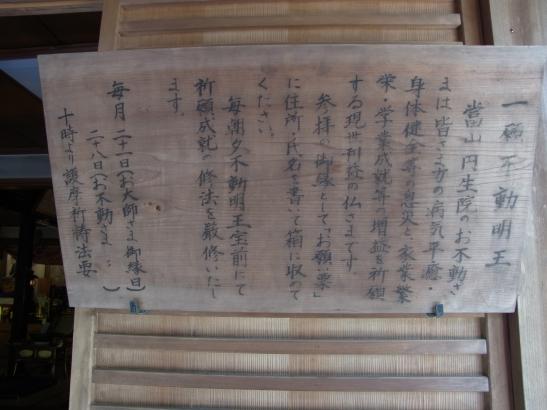 一願不動明王
当山 円生院のお不動さ
まは皆さま方の病気平癒・
身体健全等の息災と家業繁
栄・学業成就等の増益を祈願
する現世利益の仏さまです。
参拝の御縁として「お願い票」
に住所・氏名を書いて箱に収めて
ください。
毎朝夕不動明王宝前にて
祈願成就の修法を厳修いたし
ます。
毎月 二十一日(お大師さま御縁日)
二十八日(お不動さま 〃 )
十時より護摩祈祷法要